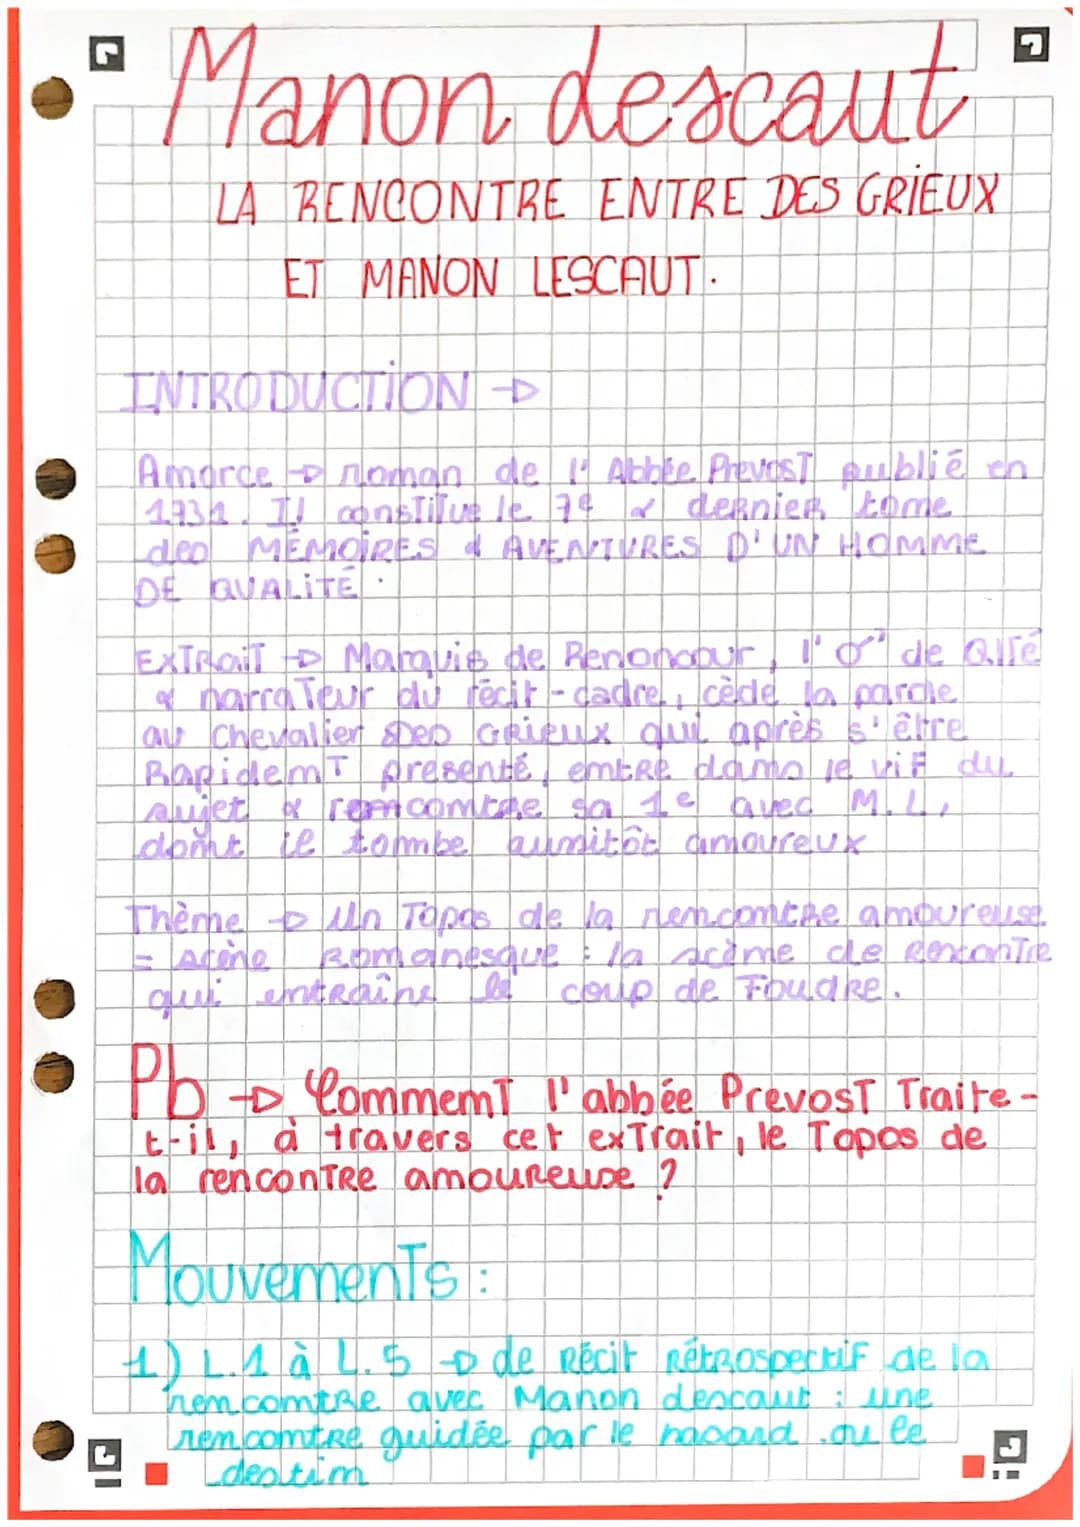 Manon descaut
LA RENCONTRE ENTRE DES GRIEUX
ET MANON LESCAUT.
INTRODUCTION →
Amorce → roman de l'Abbée Prevost publié en
1731. Il constitue le 7e & dernier tome
des MÉMOIRES & AVENTURES D'UN HOMME
DE QUALITÉ.
EXTRAIT → Marquis de Renoncour, l'♂ de Qlté
& narrateur du récit-cadre, cède la parole
au Chevalier Des Grieux qui après s'être
Rapidemt presenté, entre dans le vif du
sujet & rencontre sa 1e avec M.L,
dont il tombe aussitôt amoureux
Thème → Un Topos de la rencontre amoureuse
= scène Romanesque : la scène de Rencontre
qui entraîne le coup de Foudre.
Pb → Comment l'abbée Prevost Traite-
t-il, à travers cet exTrait, le Topos de
la rencontre amoureuse ?
Mouvements :
1) L.1 à L.5 → de Récit Rétrospectif de la
rencontre avec Manon descaut : une
rencontre guidée par le hasard ou le
destin